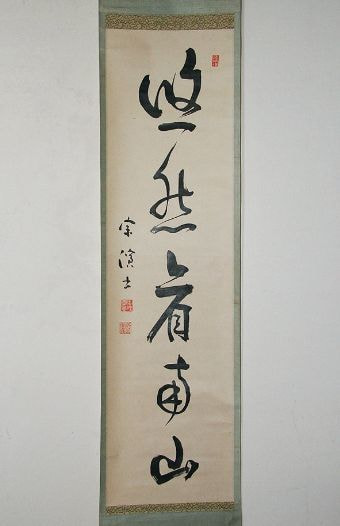 悠然看南山
宗演書